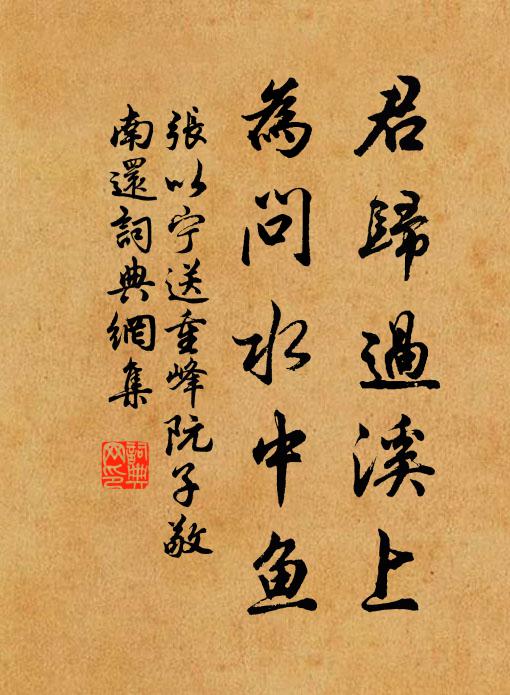 君歸過溪上
為問水中魚
張以宁送重峰阮子敬
南還詞典網集
詞典網印